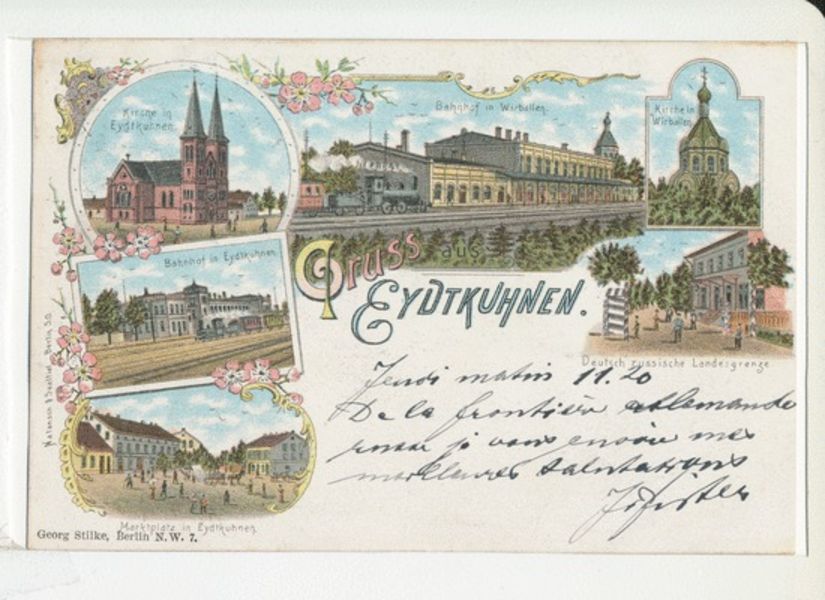 Kirche in
Eydtkuhnen.
Bahnhof in Wirballen.
Kirche in
Wirballen.
Bahnhof in Eydtkuhnen.
Gruss aus
EYDTKUHNEN.
Deutsch russische Landesgrenze.
Jeudi matin 11.20
De la frontière allemande
russe je vous envoie mes
meilleures salutations
Marktplatz in Eydtkuhnen.
Georg Stilke, Berlin N.W. 7.
Berlin S.O.